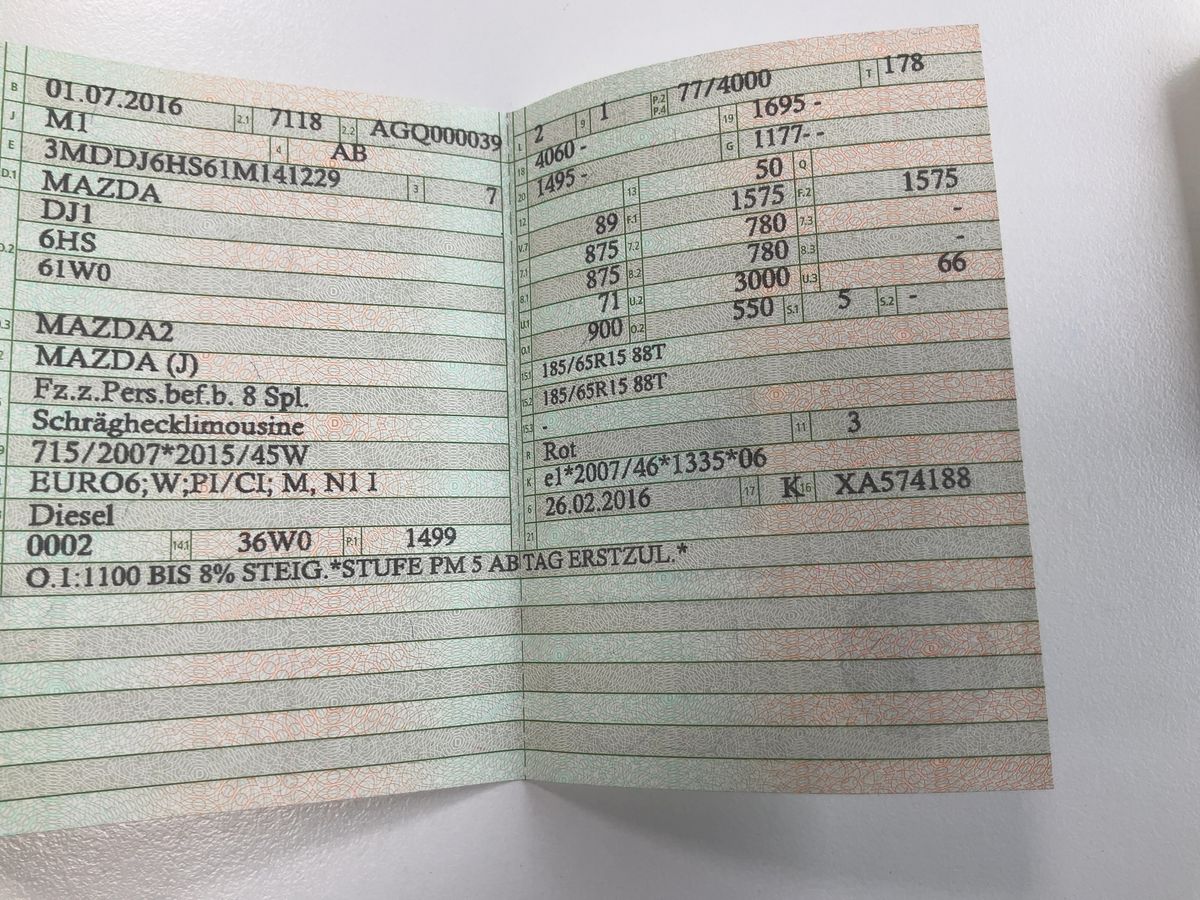 B 01.07.2016 2.1 7118 2.2 AGQ000039
J M1 4 AB
E 3MDDJ6HS61M141229 3 7
D.1 MAZDA
DJ1
D.2 6HS
61W0
D.3 MAZDA2
2 MAZDA (J)
5 Fz.z.Pers.bef.b. 8 Spl.
Schräghecklimousine
9 715/2007*2015/45W
EURO6;W;PI/CI; M, N1 I
Diesel
0002 14.1 36W0 P.1 1499
L 2 9 1 P.2 P.4 77/4000 T 178
18 4060 - 19 1695 -
20 1495 - G 1177--
12 13 50 Q
V.7 89 F.1 1575 F.2 1575
7.1 875 7.2 780 7.3 -
8.1 875 8.2 780 8.3 -
U.1 71 U.2 3000 U.3 66
O.1 900 O.2 550 S.1 5 S.2 -
15.1 185/65R15 88T
15.2 185/65R15 88T
15.3 -
R Rot 11 3
K e1*2007/46*1335*06
6 26.02.2016 17 K 16 XA574188
21
O.1:1100 BIS 8% STEIG.*STUFE PM 5 AB TAG ERSTZUL.*